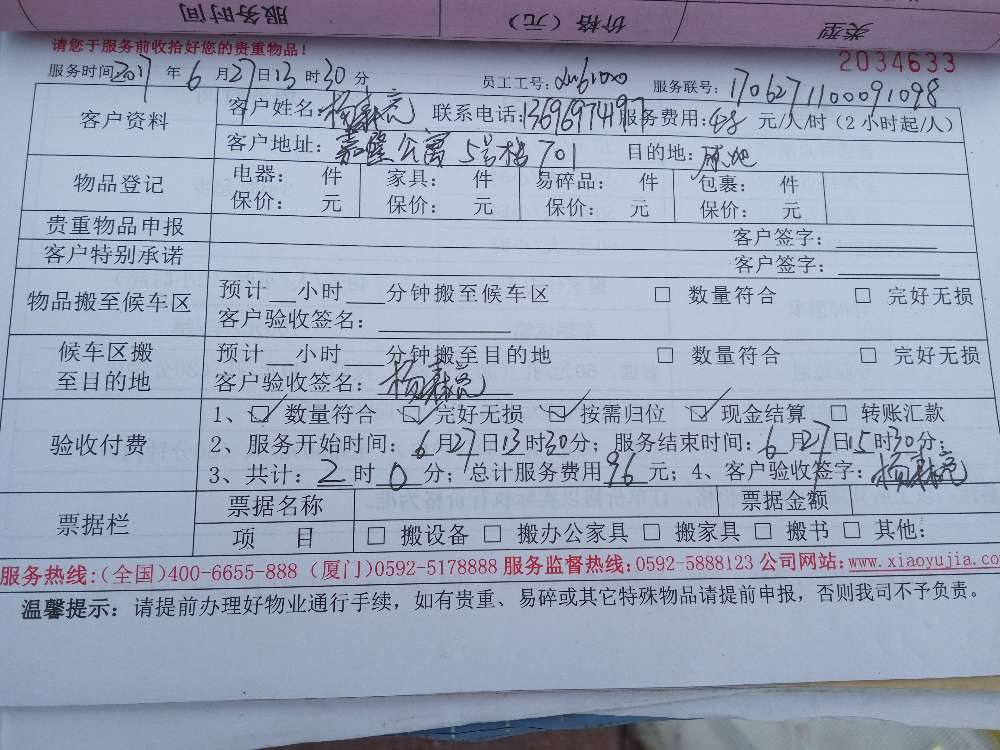 服务时间 价格（元） 类型
请您于服务前收拾好您的贵重物品！
2034633
服务时间2017年6月27日13时30分 员工工号： 服务联号：1706271100091098
客户资料 客户姓名： 联系电话：13696971497 服务费用：48元/人/时（2小时起/人）
客户地址：嘉隆公寓5号楼701 目的地：
物品登记 电器： 件 家具： 件 易碎品： 件 包裹： 件
保价： 元 保价： 元 保价： 元 保价： 元
贵重物品申报 客户签字：
客户特别承诺 客户签字：
物品搬至候车区 预计__小时___分钟搬至候车区 □ 数量符合 □ 完好无损
客户验收签名：
候车区搬至目的地 预计__小时___分钟搬至目的地 □ 数量符合 □ 完好无损
客户验收签名：
验收付费 1、☑数量符合 ☑完好无损 ☑按需归位 ☑现金结算 □ 转账汇款
2、服务开始时间：6月27日13时30分；服务结束时间：6月27日15时30分；
3、共计：2时0分；总计服务费用96元；4、客户验收签字：
票据栏 票据名称 票据金额
项 目 □ 搬设备 □ 搬办公家具 □ 搬家具 □ 搬书 □ 其他：
服务热线：（全国）400-6655-888（厦门）0592-5178888 服务监督热线：0592-5888123 公司网站：www.xiaoyujia.co
温馨提示：请提前办理好物业通行手续，如有贵重、易碎或其它特殊物品请提前申报，否则我司不予负责。